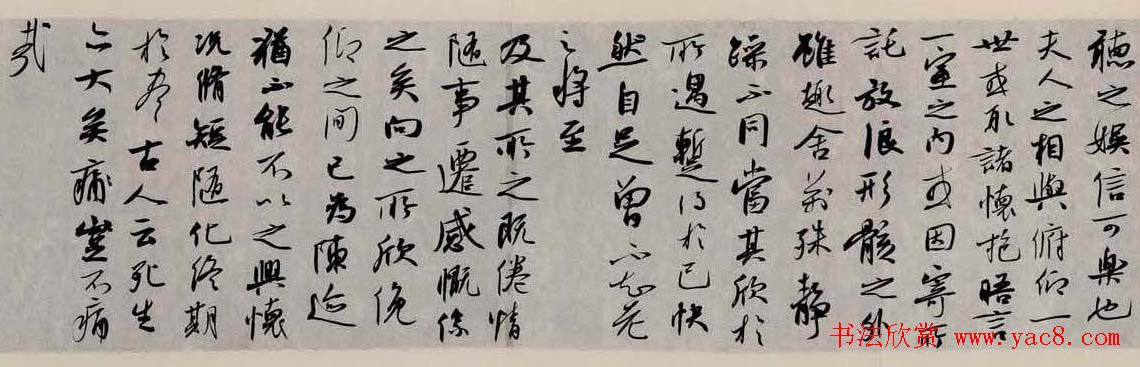 聽之娛信可樂也
夫人之相與俯仰一
世或取諸懷抱晤言
一室之內或因寄所
託放浪形骸之外
雖趣舍萬殊靜
躁不同當其欣於
所遇暫得於己快
然自足曾不知老
之將至
及其所之既倦情
隨事遷感慨係
之矣向之所欣俛
仰之間已為陳迹
猶不能不以之興懷
況脩短隨化終期
於盡古人云死生
亦大矣痛豈不痛
哉
书法欣赏 www.yac8.com